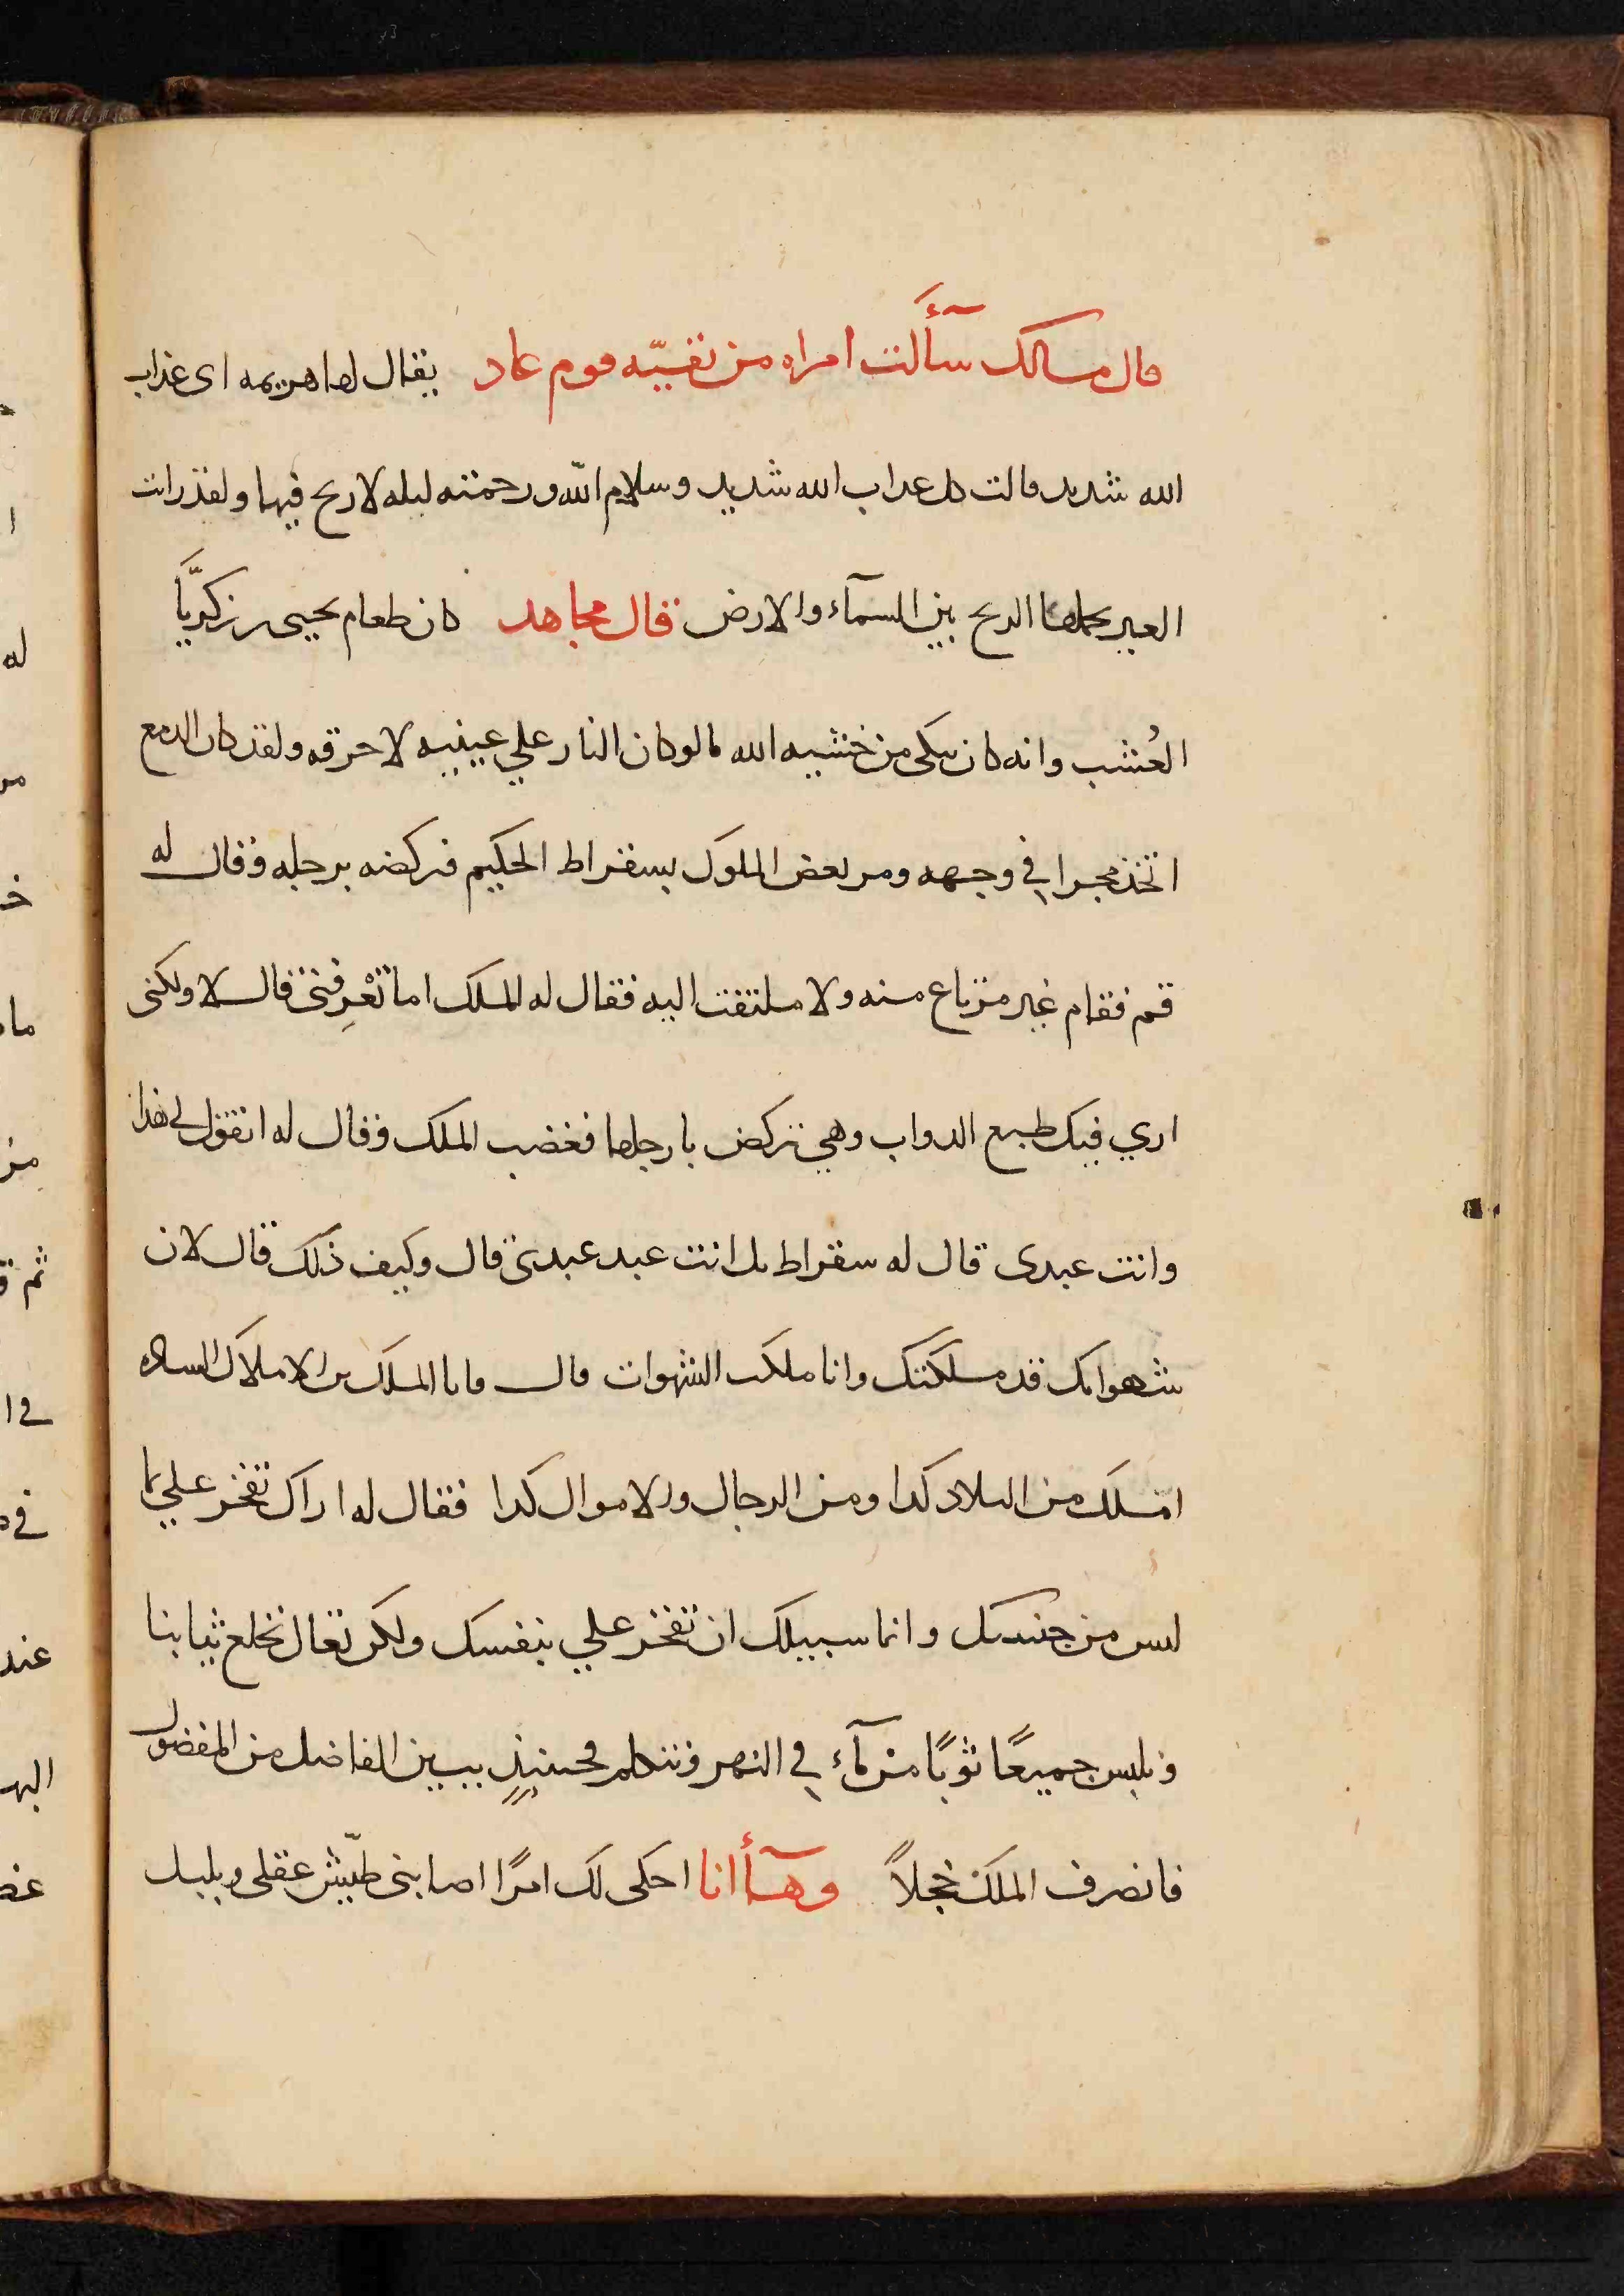 قال مسالك سآءلت امراه من بقيّه قوم عاد يقال لها هريمه اى عذاب
الله شديد قالت كل عذاب الله شديد وسلام الله ورحمته ليله لا ريح فيها ولقد رات
العير يحملها الريح بين السمآء والارض قال مجاهد كان طعام يحيى بن زكريّا
العُشب وانه كان يبكى من خشيه الله ما لو كان النار علي عينيه لاحرقه ولقد كان الدمع
اتخذ مجرا في وجهه ومر بعض الملوك بسقراط الحكيم فركضه برجله وقال له
قم فقام غير مرتاع منه ولا ملتفت اليه فقال له الملك اما تعْرِفنى قال لا ولكنى
اري فيك طبع الدواب وهي تركض بارجلها فغضب الملك وقال له اتقول لي هذا
وانت عبدى قال له سقراط بل انت عبد عبدى قال وكيف ذلك قال لان
شهواتك قد ملكتك وانا ملكت الشهوات قال فانا الملك بن الاملاك الساده
املك من البلاد كذا ومن الرجال والاموال كذا فقال له اراك تفخر علي بما
ليس من جنسك وانما سبيلك ان تفخر علي بنفسك ولكن تعال نخلع ثيابنا
ونلبس جميعًا ثوبًا من مآء في النهر ونتكلم فحينئذٍ يبين الفاضل من المفضول
فانصرف الملك خجلاً وهآأنا احكى لك امرًا اصابنى طيّش عقلى وبلبل